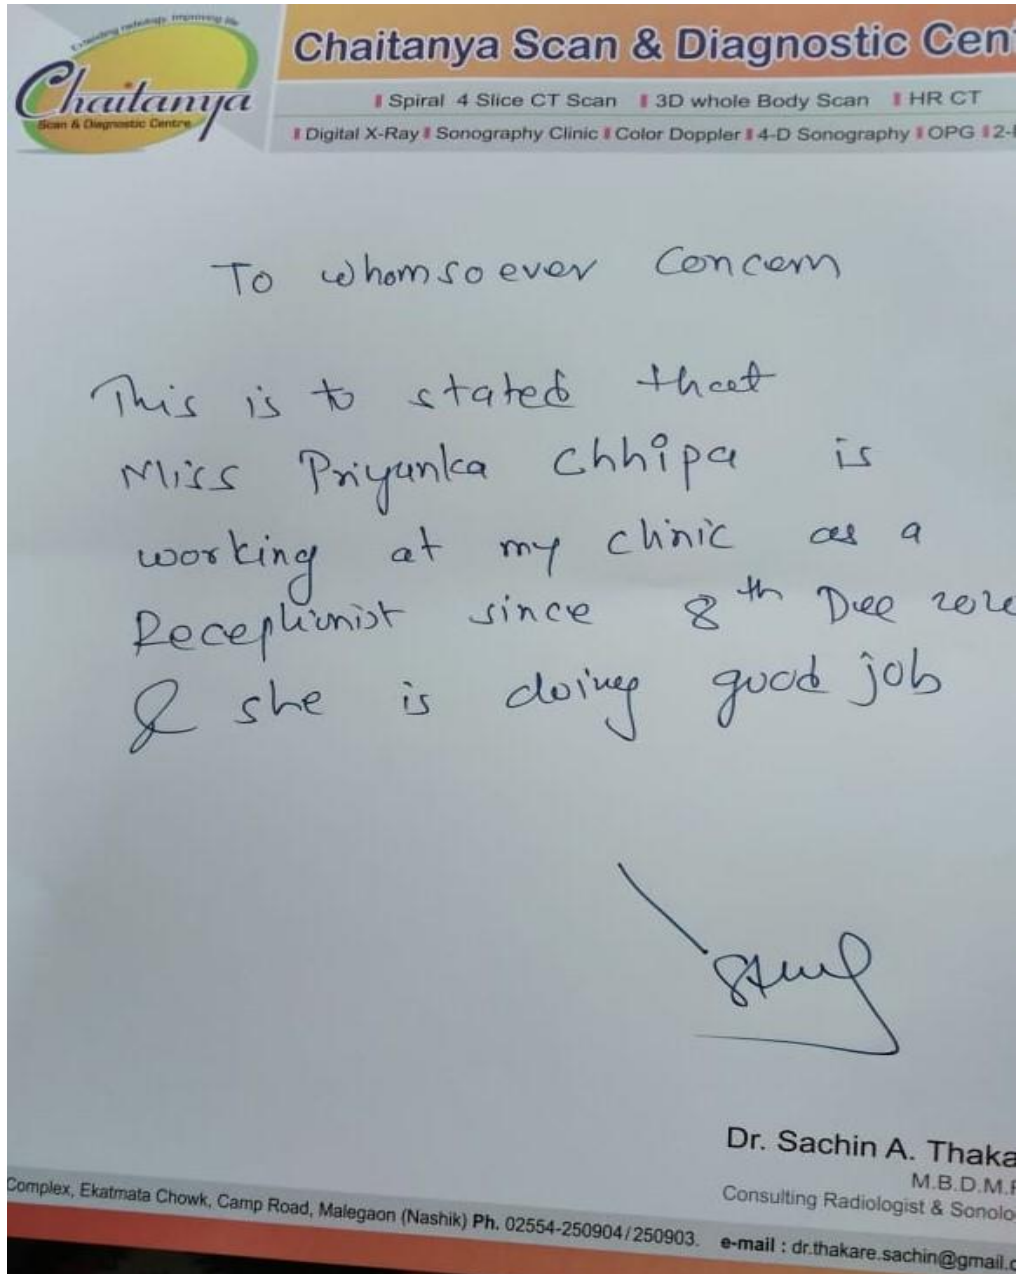 Extending radiology, Improving life
Chaitanya
Scan & Diagnostic Centre
Chaitanya Scan & Diagnostic Cen
Spiral 4 Slice CT Scan 3D whole Body Scan HR CT
Digital X-Ray Sonography Clinic Color Doppler 4-D Sonography OPG 2-
To whomsoever Concern
This is to stated that
Miss Priyanka Chhipa is
working at my clinic as a
Receptionist since 8th Dec 2020
& she is doing good job
Dr. Sachin A. Thaka
M.B.D.M.
Consulting Radiologist & Sonolo
Complex, Ekatmata Chowk, Camp Road, Malegaon (Nashik) Ph. 02554-250904/250903. e-mail : dr.thakare.sachin@gmail.c